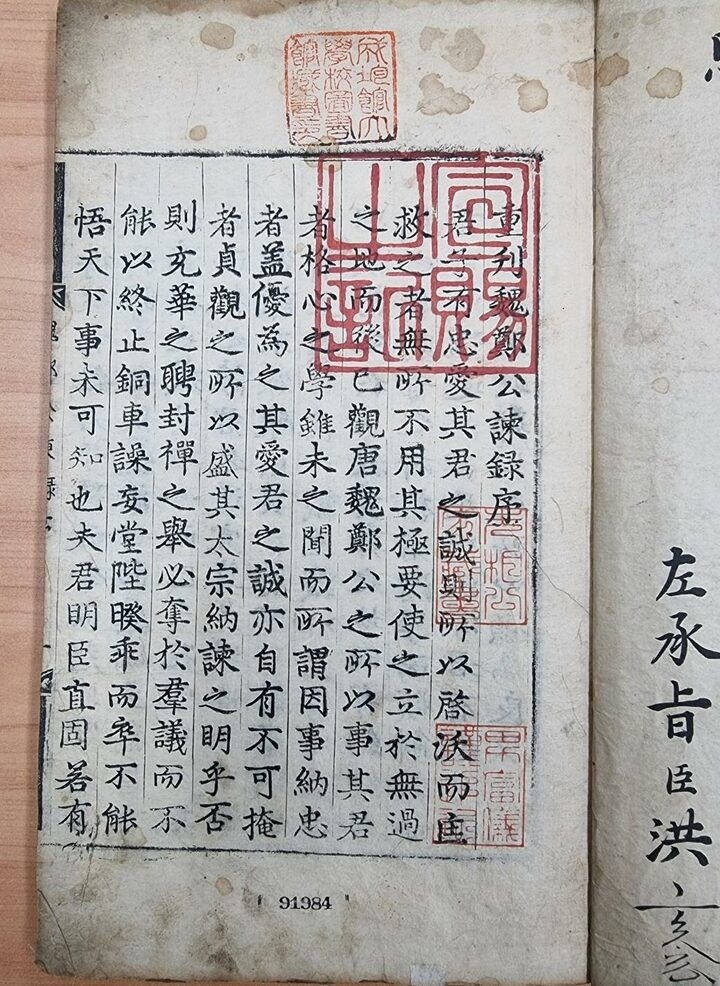 左承旨臣洪
成均館大
學校圖書
宣賜
之記
重刊魏鄭公諫録序
君子有忠愛其君之誠則所以啓沃而匡
救之者無所不用其極要使之立於無過
之地而後已觀唐魏鄭公之所以事其君
者格心之學雖未之聞而所謂因事納忠
者盖優為之其愛君之誠亦自有不可掩
者貞觀之所以盛其太宗納諫之明乎否
則充華之聘封禪之舉必奪於羣議而不
能以終止銅車譟妄堂陛暌乖而卒不能
悟天下事未可知也夫君明臣直固若有
91984